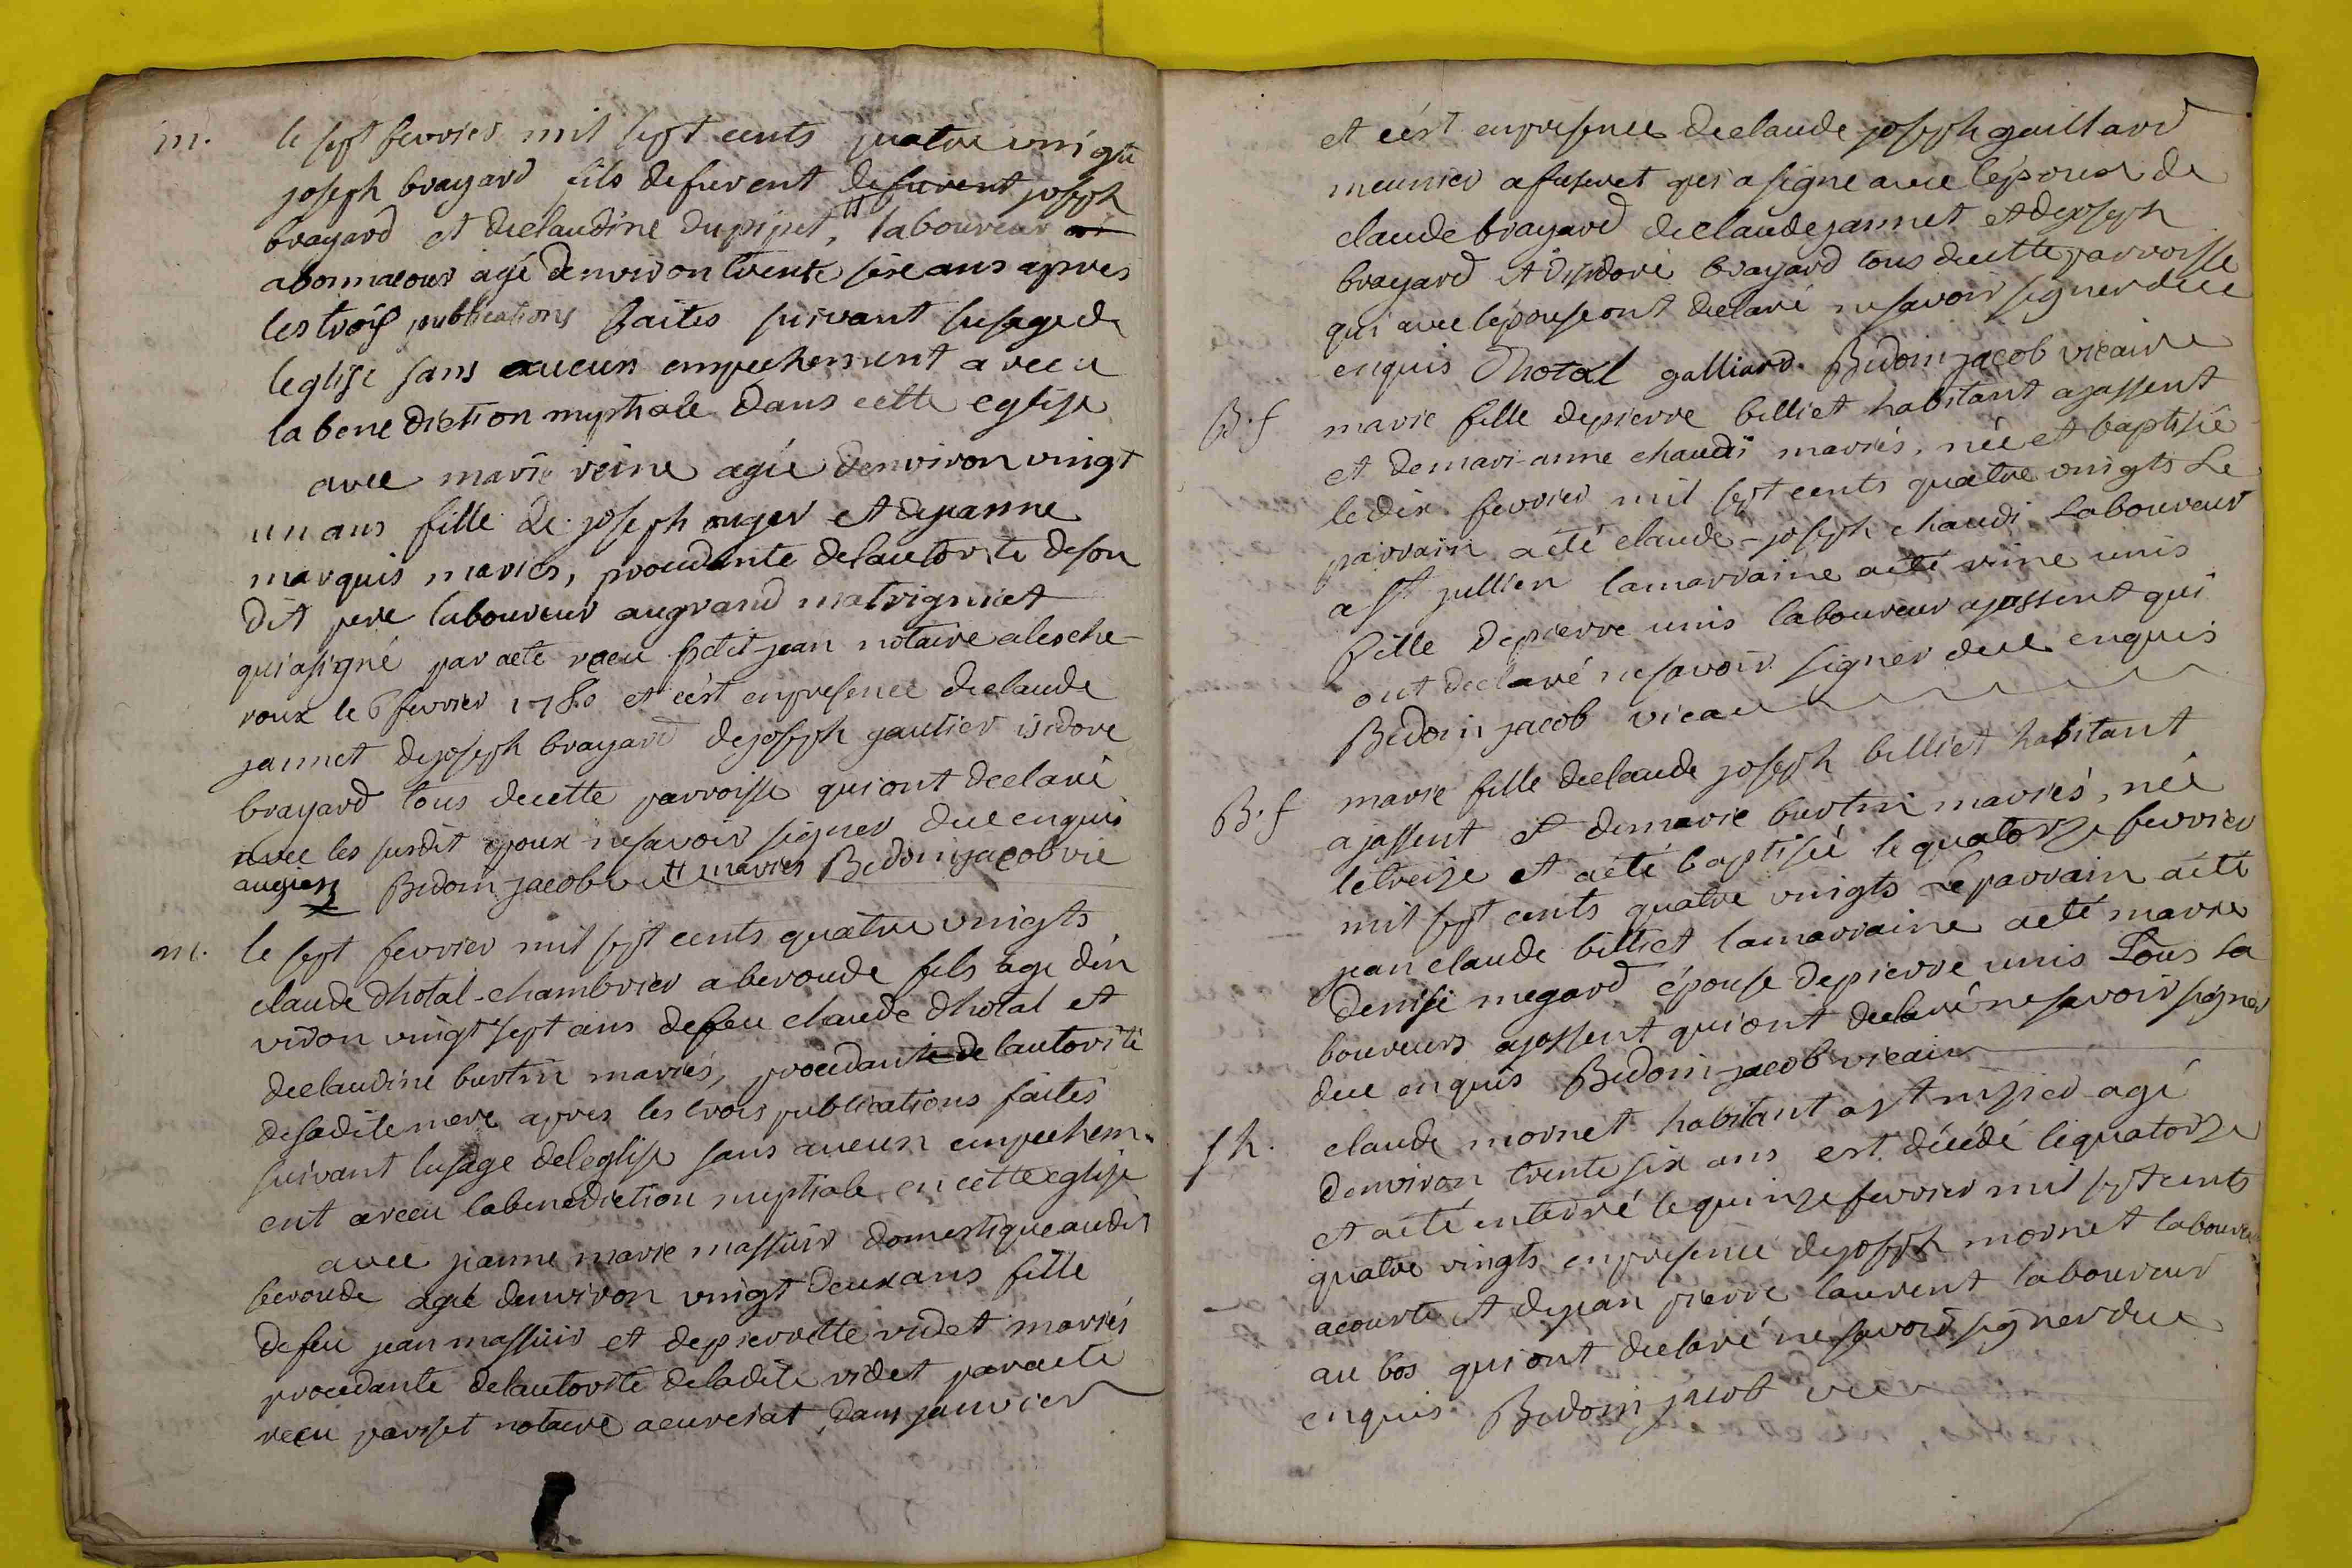 m. le sept fevrier mil sept cents quatre vingt
joseph brayard fils defurent defurent joseph
brayard et declaudine dupijut, laboureur
abonnaeour agé denviron trente sixe ans apres
les trois publications faites suivant lusage de
leglise sans aucun empechement a recu
la benediction nuptiale dans cette eglise
avec marie reine agée denviron vingt
un ans fille de joseph auger et dejeanne
marquis mariés, procedante delautorite deson
dit pere laboureur augrand matrigniet
qui asigné par acte recu petit-jean notaire alesche-
roux le 6 fevrier 1780 et cést enpresence declaude
jannet dejoseph brayard dejoseph gautier isidore
brayard tous decette parroisse qui ont declaré
avec les susdit epoux nesavoir signer due enquis
augier Bidoin jacob tt mariés Bidoin jacob vic
m. le sept fevrier mil sept cents quatre vingts
claude dhotal-chambrier a beroude fils age dén
viron vingt sept ans defeu claude dhotal et
declaudine burtin mariés, procedante de lautorité
desadite mere apres les trois publications faites
suivant lusage deleglise sans aucun empechem-
ent arecu labenediction nuptiale en cette eglise
avec jeanne marie massuir domestique audit
beroude agée denviron vingt deux ans fille
defeu jean massuir et depierrette videt mariés
procedante delautorité deladite videt paracte
recu parset notaire acuresiat dans janvier
et cést enpresence declaude joseph gaillard
meunier afuseret qui asigne avec lépoux de
claude brayard declaude jannet et dejoseph
brayard et disidore brayard tous decette parroisse
qui avec lépouse ont declaré nesavoir signer due
enquis Dhotal galliard Bidoin jacob vicaire
B.f marie fille depierre billiet habitant ajassent
et demari-anne chaudi mariés, née et baptisée
ledix fevrier mil sept cents quatre vingts Le
parrain aeté claude-joseph chaudi Laboureur
a st jullien lamarraine aeté reine unis
fille depierre unis laboureur ajassent qui
ont declaré nesavoir signer due enquis
Bidoin jacob vicai
B.f marie fille declaude joseph billiet habitant
ajassent et demarie burtin mariés, née
letreize et aeté baptisée le quatorze fevrier
mil sept cents quatre vingts Le parrain aeté
jean claude billiet lamarraine aeté marie
denise megard épouse depierre unis Tous la
boureurs ajassent qui ont declaré nesavoir signer
due enquis Bidoin jacob vicaire
sh. claude mornet habitant a st agé
denviron trente six ans est décédé lequatorze
et aeté enterré lequinze fevrier mil sept cents
quatre vingts enpresence dejoseph mornet laboureu
acourte et dejean pierre laurent laboureur
au bos qui ont declaré ne savoir signer due
enquis Bidoin jacob vicai